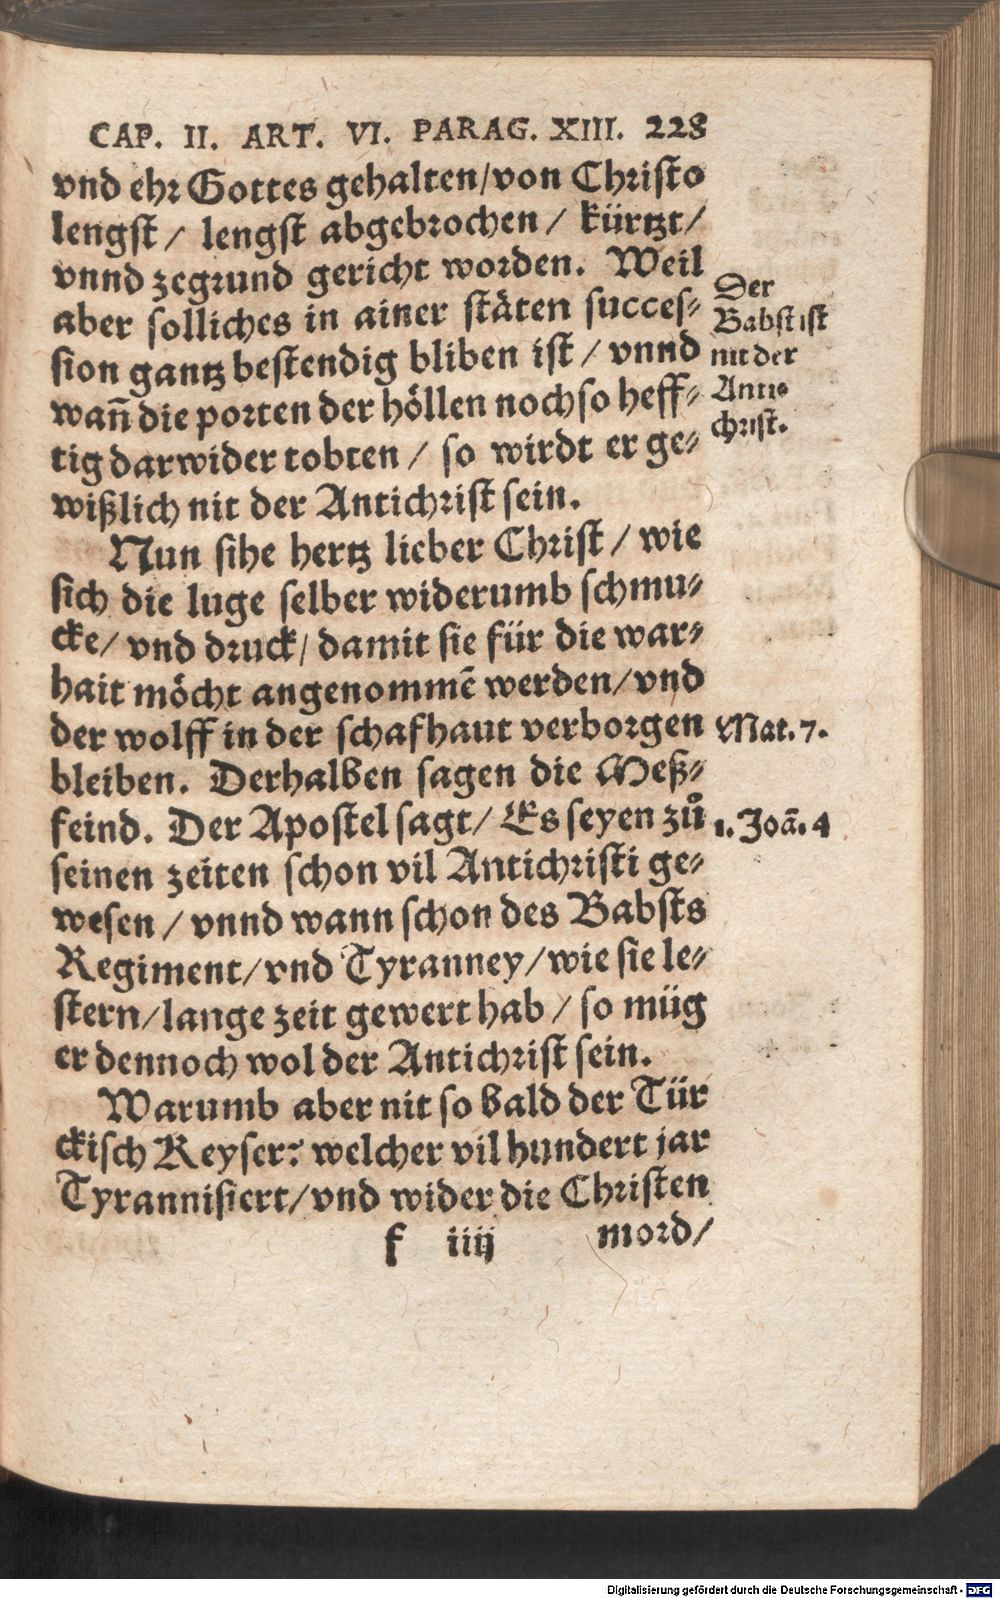 CAP. II. ART. VI. PARAG. XIII. 228
vnd ehr Gottes gehalten/von Christo
lengst/ lengst abgebrochen/ kürtzt/
vnnd zegrund gericht worden. Weil
aber solliches in ainer stäten succes⸗
sion gantz bestendig bliben ist/ vnnd
wañ die porten der höllen noch so heff⸗
tig darwider tobten/ so wirdt er ge⸗
wißlich nit der Antichrist sein.
Der
Babst ist
nit der
Anti⸗
christ.
Nun sihe hertz lieber Christ/ wie
sich die luge selber widerumb schmu⸗
cke/ vnd druck/ damit sie für die war⸗
hait möcht angenommē werden/vnd
der wolff in der schafhaut verborgen
Mat. 7.
bleiben. Derhalben sagen die Meß⸗
feind. Der Apostel sagt/ Es seyen zů
1. Joã. 4
seinen zeiten schon vil Antichristi ge⸗
wesen/ vnnd wann schon des Babsts
Regiment/vnd Tyranney/wie sie le⸗
stern/lange zeit gewert hab/ so müg
er dennoch wol der Antichrist sein.
Warumb aber nit so bald der Tür
ckisch Keyser: welcher vil hundert jar
Tyrannisiert/vnd wider die Christen
f iiij mord/
Digitalisierung gefördert durch die Deutsche Forschungsgemeinschaft - DFG